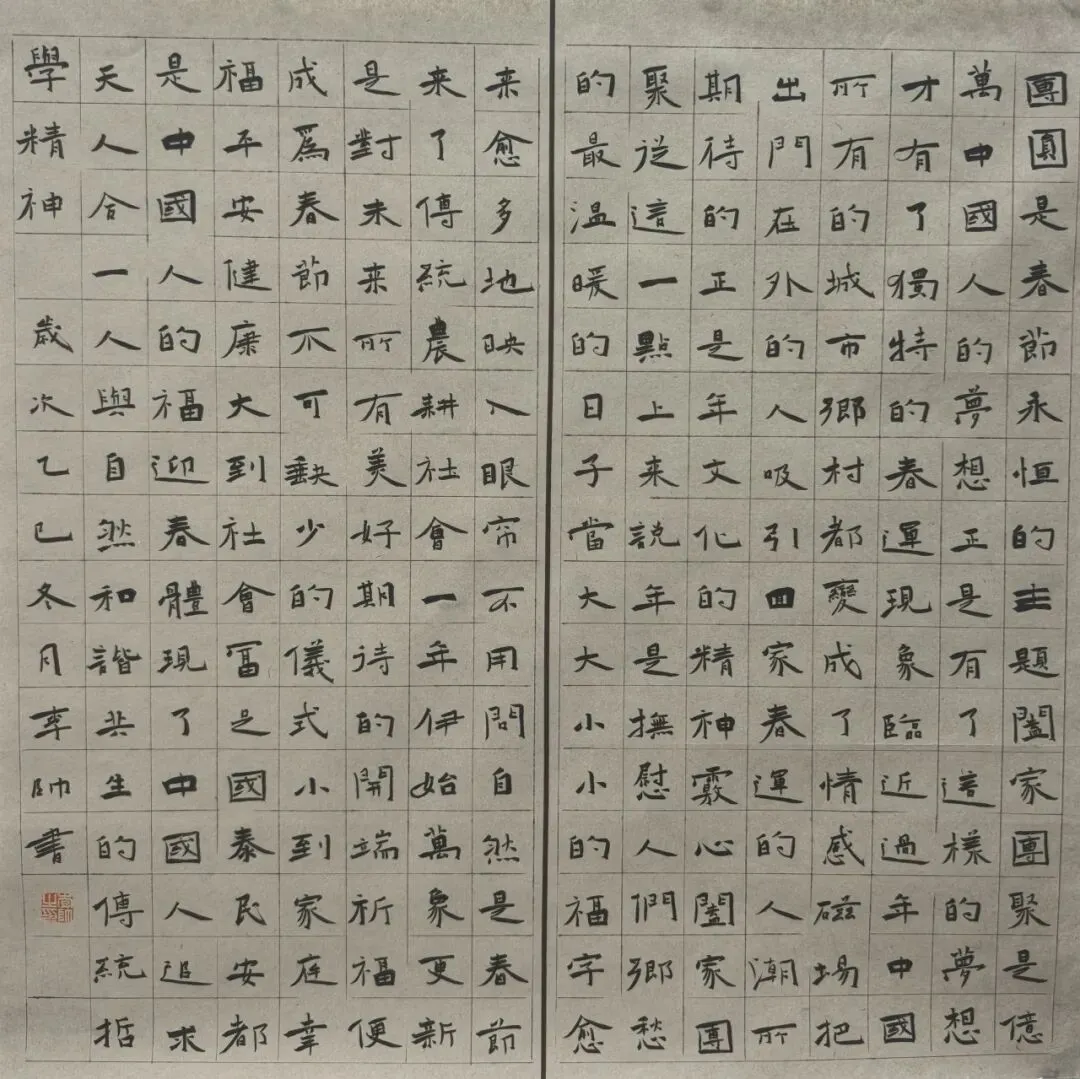 團圓是春節永恒的主題闔家團聚是億
萬中國人的夢想正是有了這樣的夢想
才有了獨特的春運現象臨近過年中國
所有的城市鄉村都變成了情感磁場把
出門在外的人吸引回家春運的人潮所
期待的正是年文化的精神覈心闔家團
聚從這一點上来説年是撫慰人們鄉愁
的最温暖的日子當大大小小的福字愈
来愈多地映入眼帘不用問自然是春節
来了傳統農耕社會一年伊始萬象更新
是對未来所有美好期待的開端祈福便
成爲春節不可缺少的儀式小到家庭幸
福平安健康大到社會富足國泰民安都
是中國人的福迎春體現了中國人追求
天人合一人與自然和諧共生的傳統哲
學精神 歲次乙巳冬月李帥書